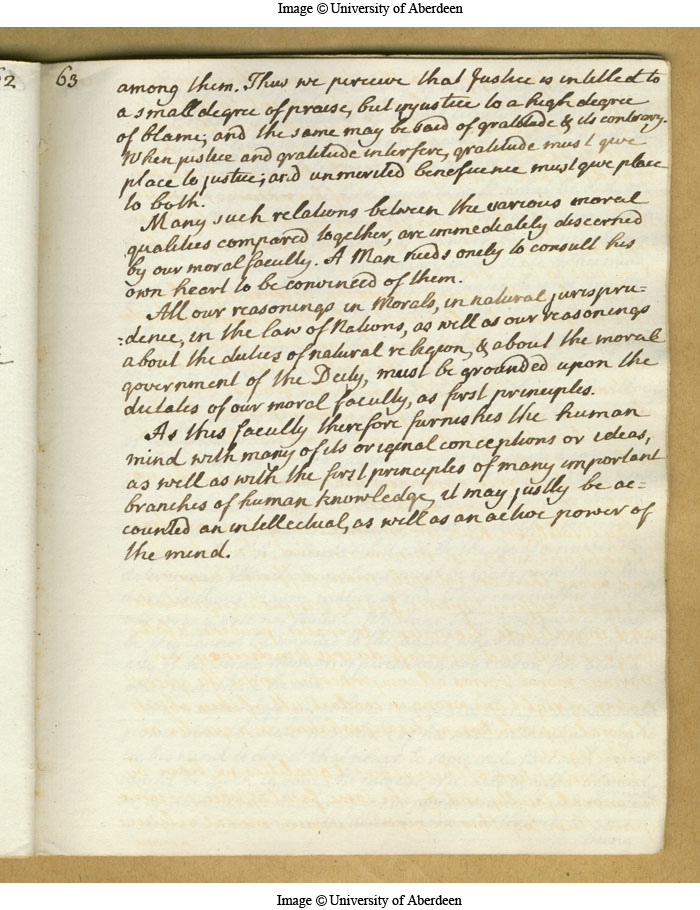 Image © University of Aberdeen
63
among them. Thus we perceive that Justice is intitled to
a small degree of praise, but injustice to a high degree
of blame; and the same may be said of gratitude & its contrary.
When justice and gratitude interfere, gratitude must give
place to justice; and unmerited beneficence must give place
to both.
Many such relations between the various moral
qualities compared together, are immediately discerned
by our moral faculty. A Man needs onely to consult his
own heart to be convinced of them.
All our reasonings in Morals, in natural jurispru=
=dence, in the law of Nations, as well as our reasonings
about the duties of natural religion, & about the moral
government of the Deity, must be grounded upon the
dictates of our moral faculty, as first principles.
As this faculty therefore furnishes the human
mind with many of its original conceptions or ideas,
as well as with the first principles of many important
branches of human knowledge, it may justly be ac=
counted an intellectual, as well as an active power of
the mind.
Image © University of Aberdeen